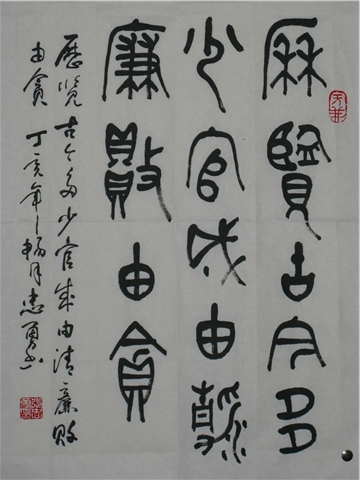 歷覽古今多
少官成由清
廉敗由貪
歷览古今多少官成由清廉败
由貪 丁亥年之畅月忠勇书